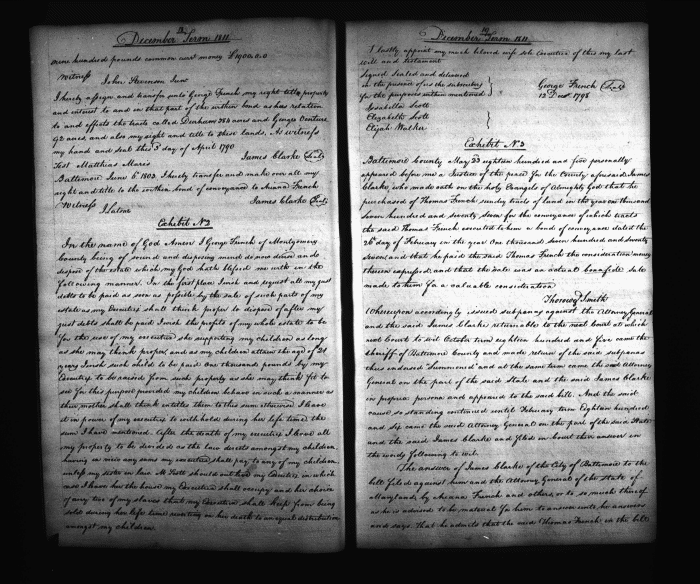 December Term 1811
nine hundred pounds common curr money £1900.0.0
Witness John Stevenson Junr
I hereby assign and transfer unto George French my right title property
and interest to and in that part of the within bond as has relation
to and affects the tracts called Durham 384 acres and Georges Venture
92 acres, and also my right and title to these lands. As witness
my hand and seal this 3d day of April 1790
Test Matthias Maris James Clarke Seal
Baltimore June 6th 1803. I hereby transfer and make over all my
right and title to the within bond of conveyance to Ariana French
Witness James Clarke Seal
Exhibit No 2
In the name of God Amen I George French of Montgomery
County being of sound and disposing mind do now draw and do
dispose of the estate which my God hath blessed me with in the
following manner. In the first place I wish and request all my just
debts to be paid as soon as possible by the sale of such parts of my
estate as my Executrix shall think proper to dispose of after my
just debts shall be paid I wish the profits of my whole estate to be
for the use of my executrix she supporting my children as long
as she may think proper and as my children attain the age of 21
years I wish such child to be paid One thousand pounds by my
Executrix to be raised from such property as she may think fit to
sell for this purpose provided my children behave in such a manner as
their mother shall think entitles them to this sum otherwise I leave
it in power of my executrix to withhold during her life time the
sum I have mentioned. After the death of my executrix I leave all
my property to be divided as the law directs amongst my children
having in view any sums my executrix shall pay to any of my children
unless my sister in law M Scott should outlive my Executrix in which
case I leave her the house my Executrix shall occupy and her choice
of any two of any slaves that my Executrix shall keep from being
sold during her life time reverting on her death to an equal distribution
amongst my children.
December Term 1811.
I lastly appoint my much beloved wife sole Executrix of this my last
will and testament
Signed Sealed and delivered
in the presence of us the subscribers
for the purposes within mentioned
George French Seal
12 Decr 1798
Isabella Scott
Elizabeth Scott
Elijah Walker
Exhibit No 3
Baltimore County May 23 eighteen hundred and five personally
appeared before me a Justice of the peace for the County aforesaid James
Clarke, who made oath on the holy Evangels of Almighty God that he
purchased of Thomas French sundry tracts of land in the year one thousand
seven hundred and seventy seven for the conveyance of which tracts
the said Thomas French executed to him a bond of conveyance dated the
26th day of February in the year One thousand seven hundred and seventy
seven and that he paid the said Thomas French the consideration money
therein expressed, and that the sale was an actual bonafide sale
made to him for a valuable consideration
Thorowgd Smith
Whereupon accordingly issued subpoenas against the Attorney General
and the said James Clarke returnable to the next Court at which
next Court to wit October term eighteen hundred and five came the
sheriff of Baltimore County and made return of the said subpoenas
thus endorsed "Summoned" and at the same term came the said Attorney
General on the part of the said State and the said James Clarke
in proper persona and appeared to the said bill. And the said
cause so standing continued until February term Eighteen hundred
and six came the said Attorney General on the part of the said State
and the said James Clarke and filed in Court their answer in
the words following to wit.
The answer of James Clarke of the City of Baltimore to the
bill filed against him and the Attorney General of the State of
Maryland by Ariana French and others, or to so much thereof
as he is advised to be material for him to answer unto, he answers
and says. That he admits that the said Thomas French in the bill